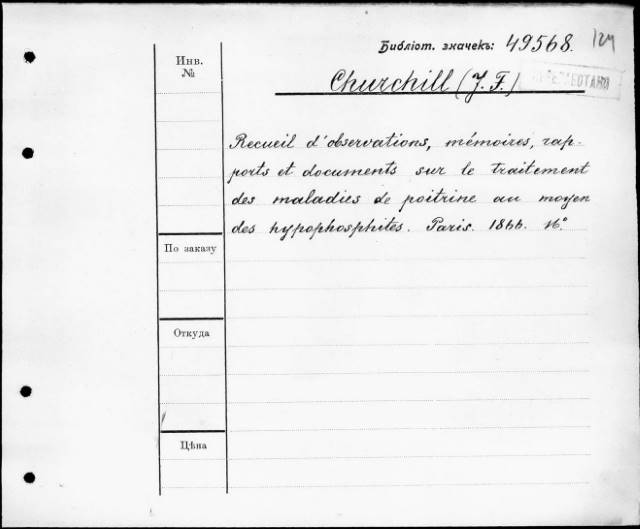 Библіот. значекъ: 49568.
Инв.
№
Churchill (J. F.)
Recueil d'observations, mémoires, rap-
ports et documents sur le traitement
des maladies de poitrine au moyen
des hypophosphites. Paris. 1866. 16°
По заказу
Откуда
Цѣна